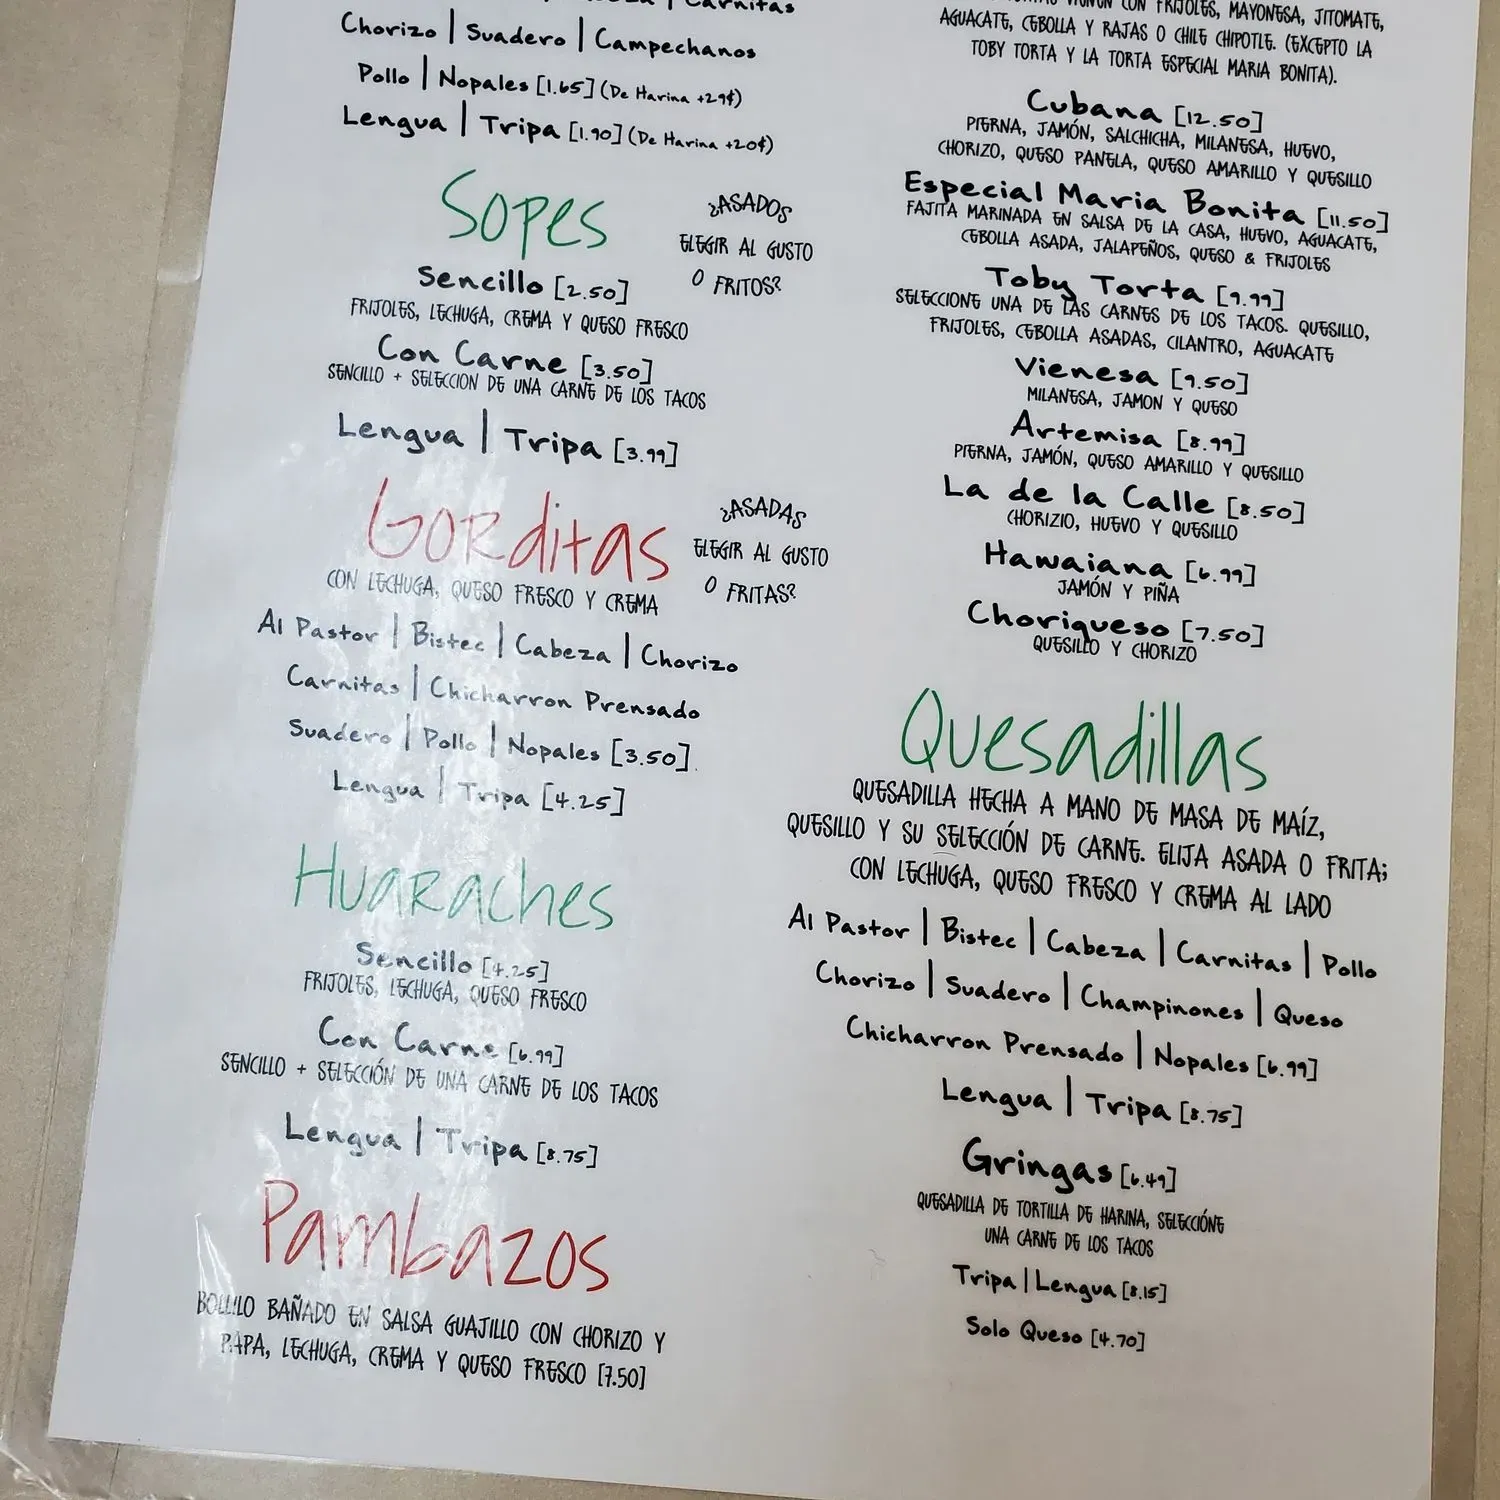 Carnitas
Chorizo | Suadero | Campechanos
Pollo | Nopales [1.65] (De Harina +29¢)
Lengua | Tripa [1.90] (De Harina +20¢)
Sopes
¿ASADOS
ELEGIR AL GUSTO
O FRITOS?
Sencillo [2.50]
FRIJOLES, LECHUGA, CREMA Y QUESO FRESCO
Con Carne [3.50]
SENCILLO + SELECCION DE UNA CARNE DE LOS TACOS
Lengua | Tripa [3.99]
Gorditas
¿ASADAS
ELEGIR AL GUSTO
O FRITAS?
CON LECHUGA, QUESO FRESCO Y CREMA
Al Pastor | Bistec | Cabeza | Chorizo
Carnitas | Chicharron Prensado
Suadero | Pollo | Nopales [3.50]
Lengua | Tripa [4.25]
Huaraches
Sencillo [4.25]
FRIJOLES, LECHUGA, QUESO FRESCO
Con Carne [6.99]
SENCILLO + SELECCIÓN DE UNA CARNE DE LOS TACOS
Lengua | Tripa [8.75]
Pambazos
BOLLILO BAÑADO EN SALSA GUAJILLO CON CHORIZO Y
PAPA, LECHUGA, CREMA Y QUESO FRESCO [7.50]
VIENEN CON FRIJOLES, MAYONESA, JITOMATE,
AGUACATE, CEBOLLA Y RAJAS O CHILE CHIPOTLE. (EXCEPTO LA
TOBY TORTA Y LA TORTA ESPECIAL MARIA BONITA).
Cubana [12.50]
PIERNA, JAMÓN, SALCHICHA, MILANESA, HUEVO,
CHORIZO, QUESO PANELA, QUESO AMARILLO Y QUESILLO
Especial Maria Bonita [11.50]
FAJITA MARINADA EN SALSA DE LA CASA, HUEVO, AGUACATE,
CEBOLLA ASADA, JALAPEÑOS, QUESO & FRIJOLES
Toby Torta [9.99]
SELECCIONE UNA DE LAS CARNES DE LOS TACOS. QUESILLO,
FRIJOLES, CEBOLLA ASADAS, CILANTRO, AGUACATE
Vienesa [9.50]
MILANESA, JAMON Y QUESO
Artemisa [8.99]
PIERNA, JAMÓN, QUESO AMARILLO Y QUESILLO
La de la Calle [8.50]
CHORIZIO, HUEVO Y QUESILLO
Hawaiana [6.99]
JAMÓN Y PIÑA
Choriqueso [7.50]
QUESILLO Y CHORIZO
Quesadillas
QUESADILLA HECHA A MANO DE MASA DE MAÍZ,
QUESILLO Y SU SELECCIÓN DE CARNE. ELIJA ASADA O FRITA;
CON LECHUGA, QUESO FRESCO Y CREMA AL LADO
Al Pastor | Bistec | Cabeza | Carnitas | Pollo
Chorizo | Suadero | Champinones | Queso
Chicharron Prensado | Nopales [6.99]
Lengua | Tripa [8.75]
Gringas [6.49]
QUESADILLA DE TORTILLA DE HARINA, SELECCIÓNE
UNA CARNE DE LOS TACOS
Tripa | Lengua [8.15]
Solo Queso [4.70]